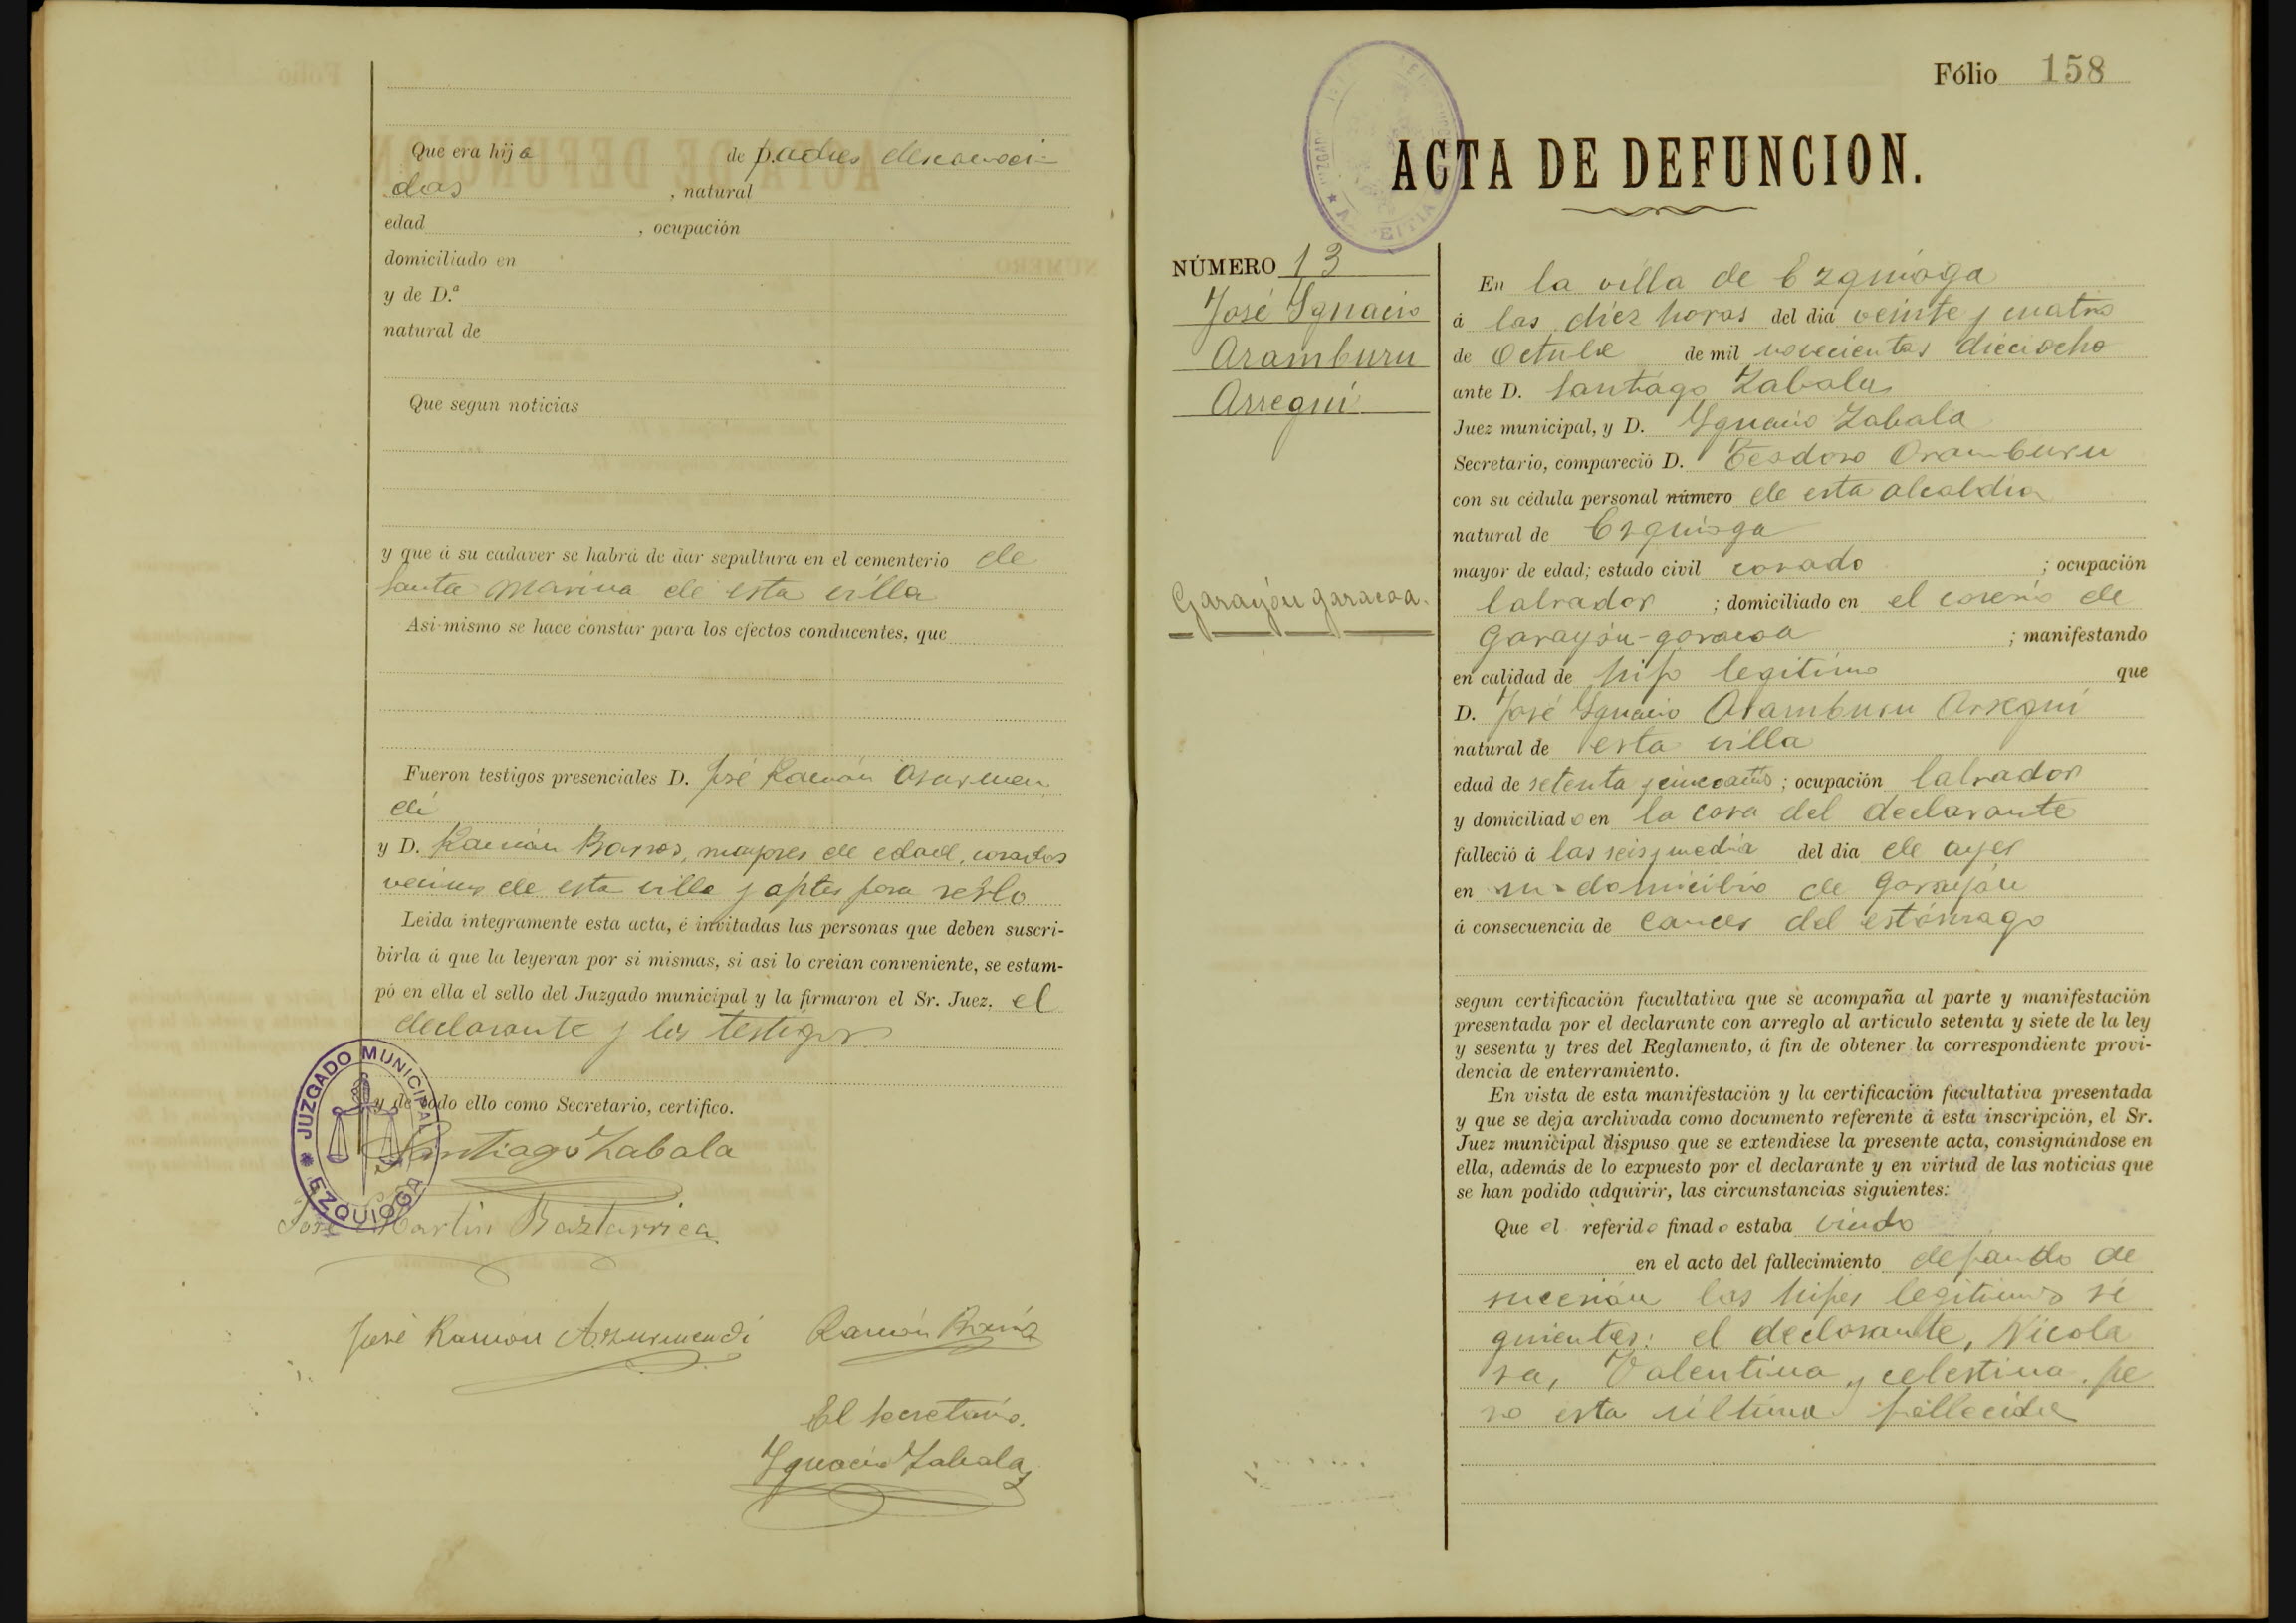 Que era hija de padres desconoci-
dos , natural
edad , ocupación
domiciliado en
y de D.ª
natural de
Que segun noticias
y que á su cadaver se habrá de dar sepultura en el cementerio de
Santa Marina de esta villa
Asi mismo se hace constar para los efectos conducentes, que
Fueron testigos presenciales D. José Ramón Azurmen
di
y D. Ramón Barros, mayores de edad, casados
vecinos de esta villa y aptos para serlo
Leida íntegramente esta acta, é invitadas las personas que deben suscri-
birla á que la leyeran por si mismas, si asi lo creian conveniente, se estam-
pó en ella el sello del Juzgado municipal y la firmaron el Sr. Juez. el
declarante y los testigos
y de todo ello como Secretario, certifico.
JUZGADO MUNICIPAL EZQUIOGA
Santiago Zabala
José Martin Baztarrica
José Ramón Azurmendi Ramón
El Secretario.
Ygnacio Zabala
Fólio 158
ACTA DE DEFUNCION.
NÚMERO 13
José Ygnacio
Aramburu
Arregui
Garayóu garacoa.
En la villa de Ezquioga
á las diez horas del dia veinte y cuatro
de Octubre de mil novecientos dieciocho
ante D. Santiago Zabala
Juez municipal, y D. Ygnacio Zabala
Secretario, compareció D. Teodoro Aramburu
con su cédula personal número de esta alcaldia
natural de Ezquioga
mayor de edad; estado civil casado ; ocupación
labrador ; domiciliado en el caserio de
Garayóu-garacoa ; manifestando
en calidad de hijo legitimo que
D. José Ygnacio Aramburu Arregui
natural de esta villa
edad de setenta y cinco años ; ocupación labrador
y domiciliado en la casa del declarante
falleció á las seis y media del dia de ayer
en su domicilio de Garayóu
á consecuencia de cancer del estómago
segun certificación facultativa que se acompaña al parte y manifestación
presentada por el declarante con arreglo al articulo setenta y siete de la ley
y sesenta y tres del Reglamento, á fin de obtener la correspondiente provi-
dencia de enterramiento.
En vista de esta manifestación y la certificación facultativa presentada
y que se deja archivada como documento referente á esta inscripción, el Sr.
Juez municipal dispuso que se extendiese la presente acta, consignándose en
ella, además de lo expuesto por el declarante y en virtud de las noticias que
se han podido adquirir, las circunstancias siguientes:
Que el referido finado estaba viudo
en el acto del fallecimiento dejando de
sucesión los hijos legitimos si
guientes: el declarante, Nicola
sa, Valentina y celestina, pe
ro esta última fallecida